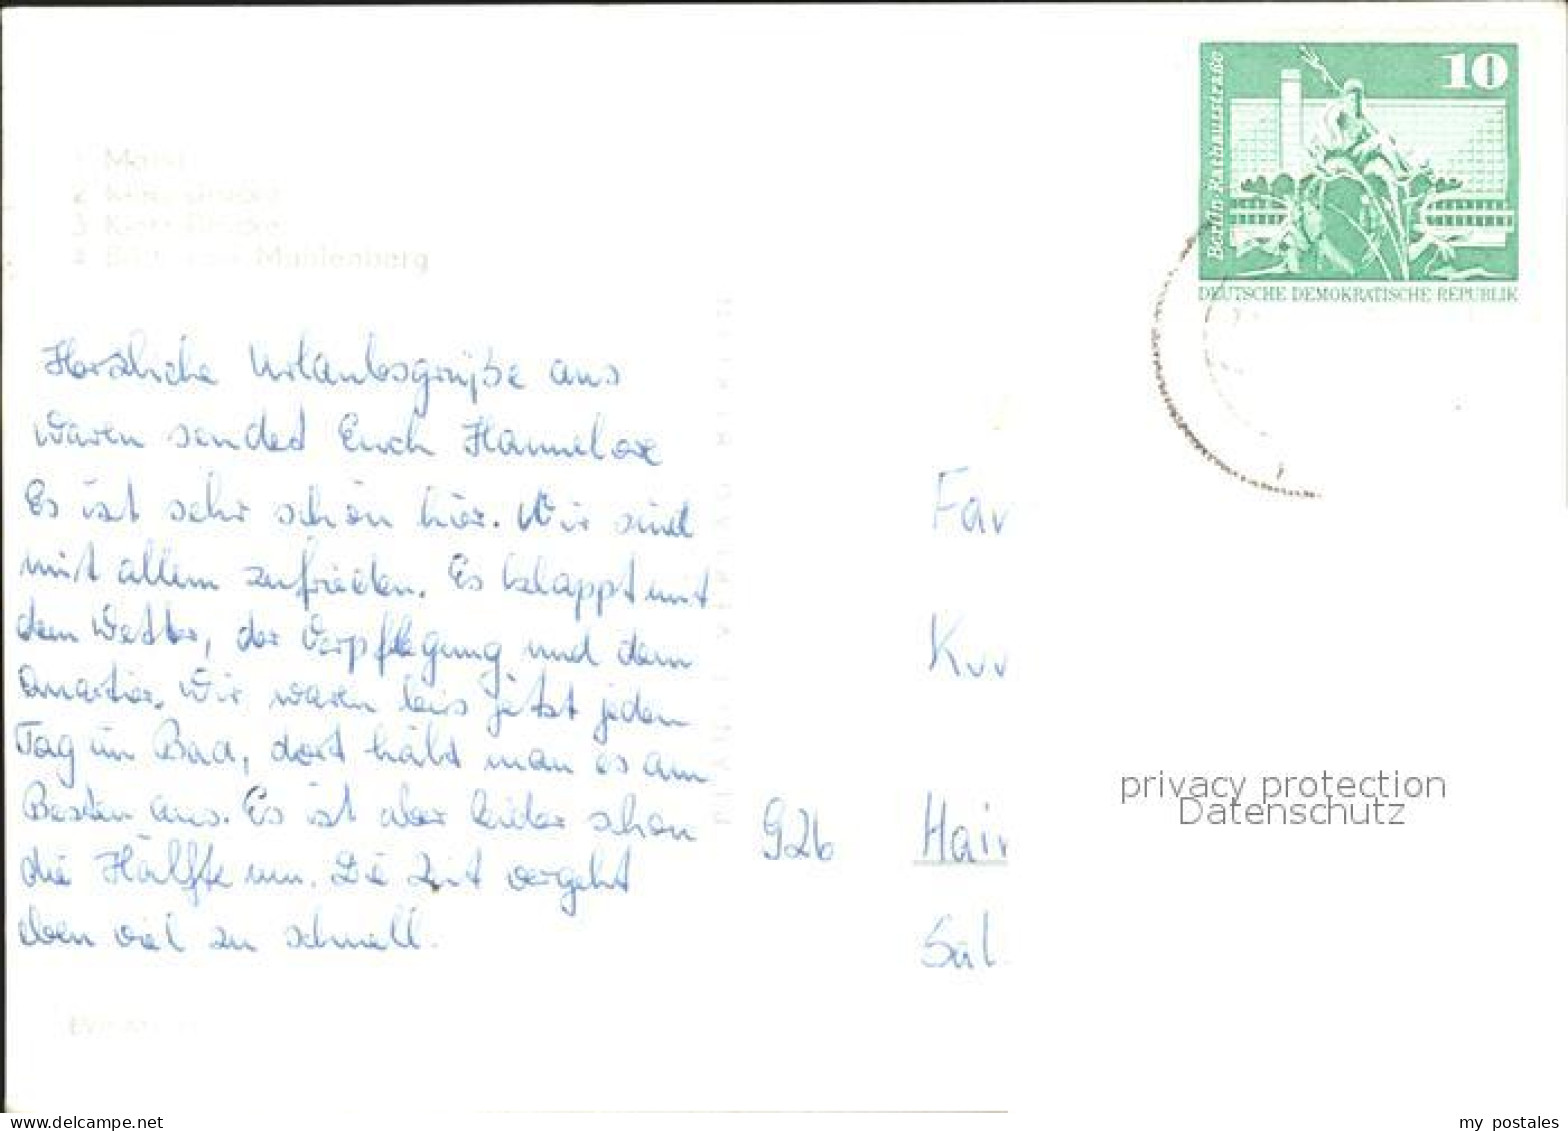 Berlin-Rathausstraße
10
DEUTSCHE DEMOKRATISCHE REPUBLIK
1 Markt
2
3
4 Mühlenberg
Herzliche Urlaubsgrüße aus
Waren sended Euch Hannelore
Es ist sehr schön hier. Wir sind
mit allem zufrieden. Es klappt mit
dem Wetter, der Verpflegung und dem
Quartier. Wir waren bis jetzt jeden
Tag im Bad, dort hält man es am
Besten aus. Es ist aber leider schon
die Hälfte um. Die Zeit vergeht
eben viel zu schnell.
Fav
Kuv
926 Hain
Sal
privacy protection
Datenschutz
my postales